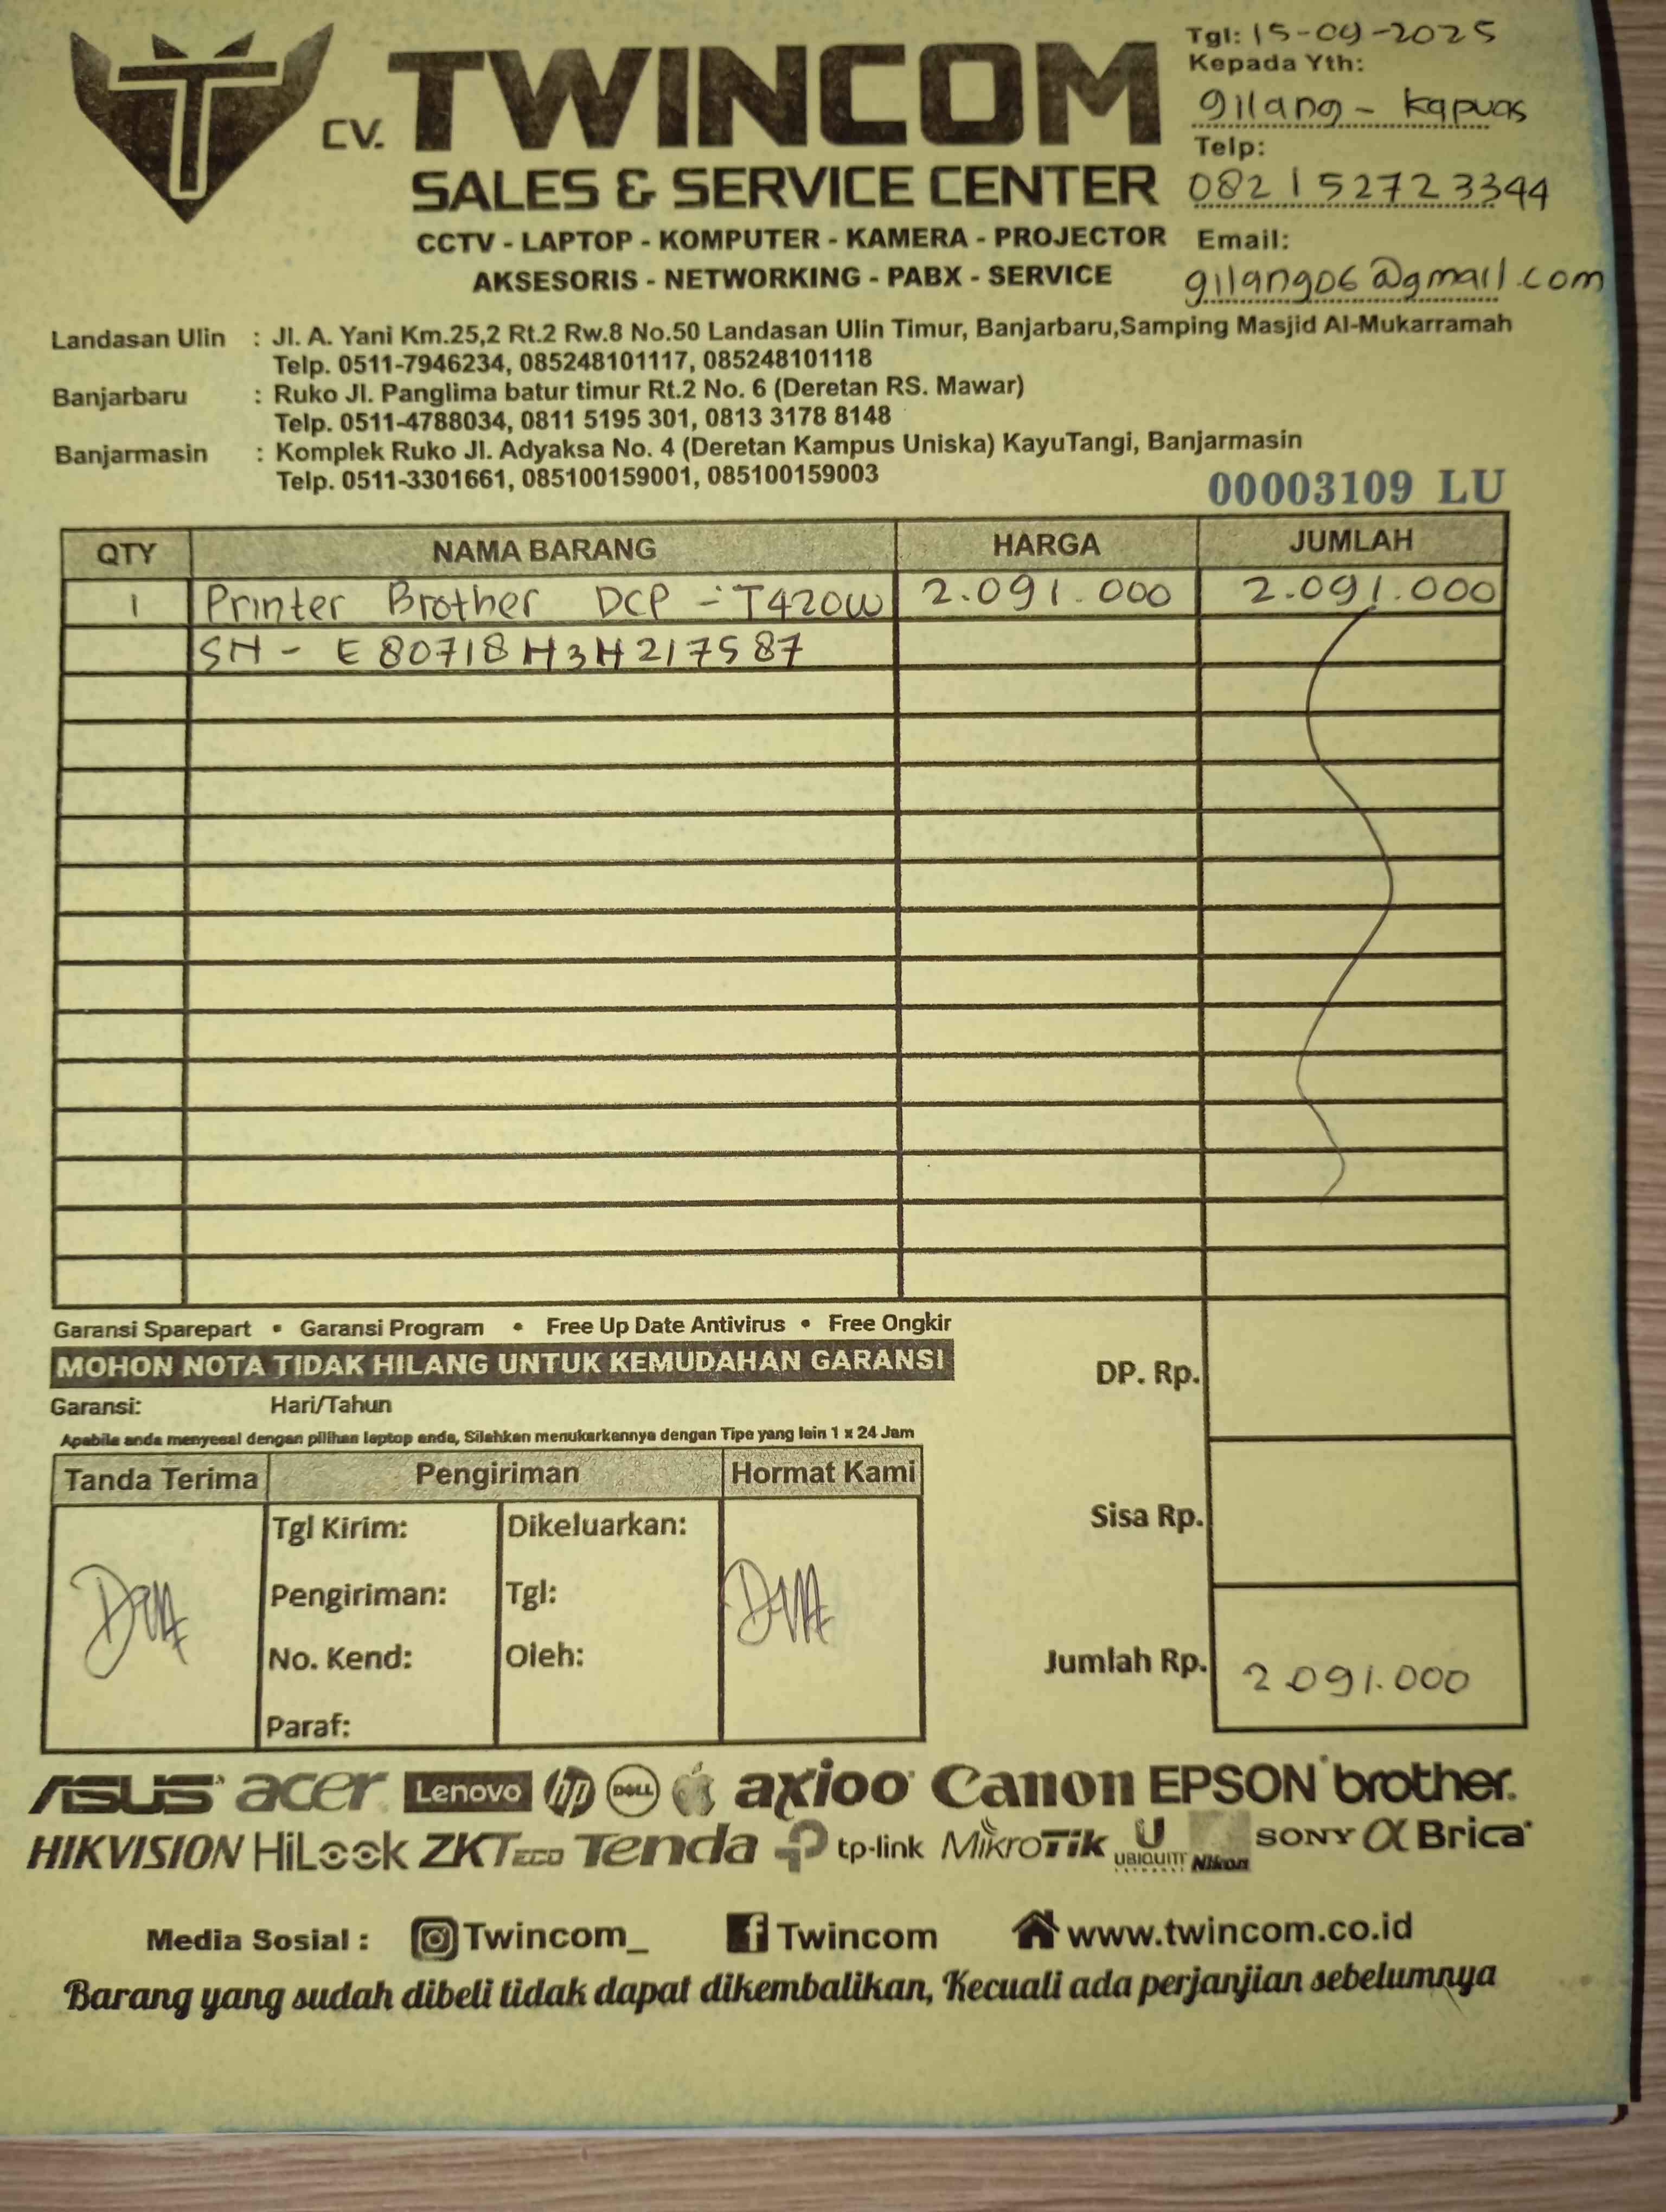 Tgl: 15-09-2025
Kepada Yth:
gilang - kapuas
Telp:
082152723344
Email:
gilang06@gmail.com
CV. TWINCOM
SALES & SERVICE CENTER
CCTV - LAPTOP - KOMPUTER - KAMERA - PROJECTOR
AKSESORIS - NETWORKING - PABX - SERVICE
Landasan Ulin : Jl. A. Yani Km.25,2 Rt.2 Rw.8 No.50 Landasan Ulin Timur, Banjarbaru,Samping Masjid Al-Mukarramah
Telp. 0511-7946234, 085248101117, 085248101118
Banjarbaru : Ruko Jl. Panglima batur timur Rt.2 No. 6 (Deretan RS. Mawar)
Telp. 0511-4788034, 0811 5195 301, 0813 3178 8148
Banjarmasin : Komplek Ruko Jl. Adyaksa No. 4 (Deretan Kampus Uniska) KayuTangi, Banjarmasin
Telp. 0511-3301661, 085100159001, 085100159003
00003109 LU
QTY NAMA BARANG HARGA JUMLAH
1 Printer Brother DCP - T420W 2.091.000 2.091.000
SN - E80718H3H217587
Garansi Sparepart • Garansi Program • Free Up Date Antivirus • Free Ongkir
MOHON NOTA TIDAK HILANG UNTUK KEMUDAHAN GARANSI
Garansi: Hari/Tahun
Apabila anda menyesal dengan pilihan laptop anda, Silahkan menukarkannya dengan Tipe yang lain 1 x 24 Jam
DP. Rp.
Sisa Rp.
Jumlah Rp. 2.091.000
Tanda Terima Pengiriman Hormat Kami
Tgl Kirim: Dikeluarkan:
Pengiriman: Tgl:
No. Kend: Oleh:
Paraf:
ASUS acer Lenovo hp DELL axioo Canon EPSON brother
HIKVISION HiLook ZKTECO Tenda tp-link MikroTik U UBIQUITI Nikon SONY α Brica
Media Sosial : Twincom_ Twincom www.twincom.co.id
Barang yang sudah dibeli tidak dapat dikembalikan, Kecuali ada perjanjian sebelumnya